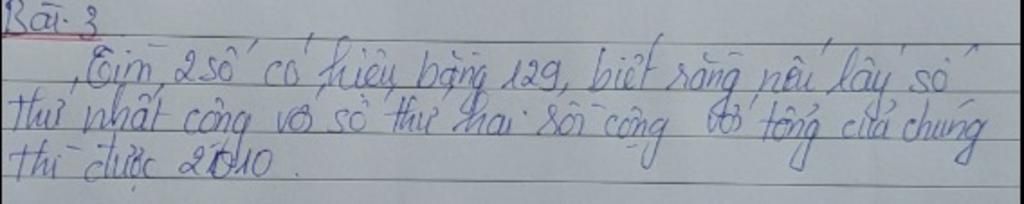 Bài. 3
Tìm 2 số có hiệu bằng 129, biết rằng nếu lấy số
thứ nhất cộng với số thứ hai rồi cộng với tổng của chúng
thì được 2010.